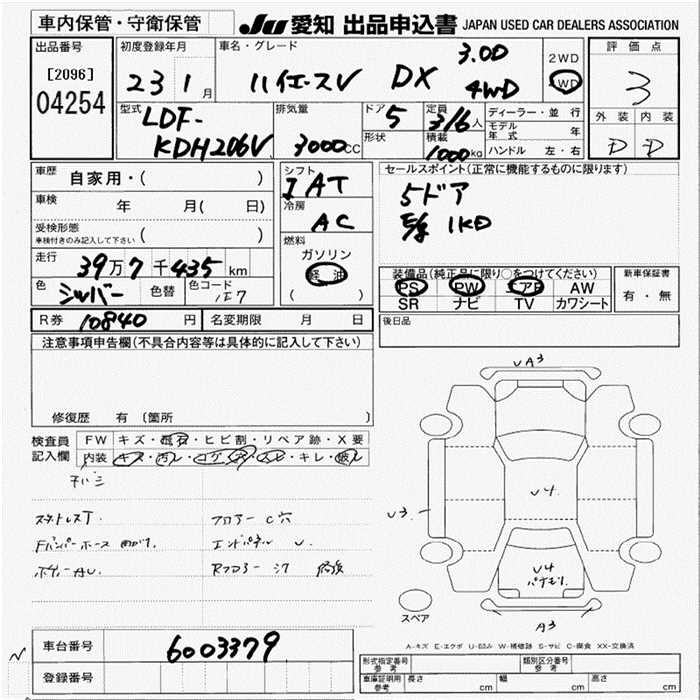 車内保管・守衛保管
JU 愛知 出品申込書 JAPAN USED CAR DEALERS ASSOCIATION
出品番号
[2096]
04254
初度登録年月
23 1 月
車名・グレード
ハイエースV DX 3.0D 4WD
2WD
4WD
評価点
3
外装 内装
D D
型式
LDF-
KDH206V
排気量
3000 CC
ドア
5
形状
定員
3/6 人
積載
1000 kg
ディーラー・並行
モデル年式 年
ハンドル 左・右
車歴
自家用・( )
車検
年 月( 日)
受検形態
車検付きのみ記入して下さい ( )
走行
39万7千435km
色
シルバー
色替
色コード
1E7
シフト
IAT
冷房
AC
燃料
ガソリン
軽油
( )
セールスポイント(正常に機能するものに限ります)
5ドア
1KD
装備品(純正品に限り○をつけてください)
PS PW エアB AW
SR ナビ TV カワシート
新車保証書
有・無
R券 10840 円
名変期限 月 日
後日品
注意事項申告欄(不具合内容等は具体的に記入して下さい)
修復歴 有 〔箇所
検査員
記入欄
FW キズ・飛石・ヒビ割・リペア跡・X要
内装 キズ・汚レ・コゲ・穴・スレ・キレ・破レ
スタットレスT. フロアー C穴
Fバンパーホース 曲がり. エンドパネル U.
ボディーAU. Rフロアー
UA3
U3
U4
U4
A3
スペア
A-キズ E-エクボ U-凹み W-補修跡 S-サビ C-腐食 XX-交換済
車台番号
6003379
登録番号
形式指定番号
参考
類別区分番号
参考
車庫証明用
参考
長さ cm
幅 cm
高さ cm